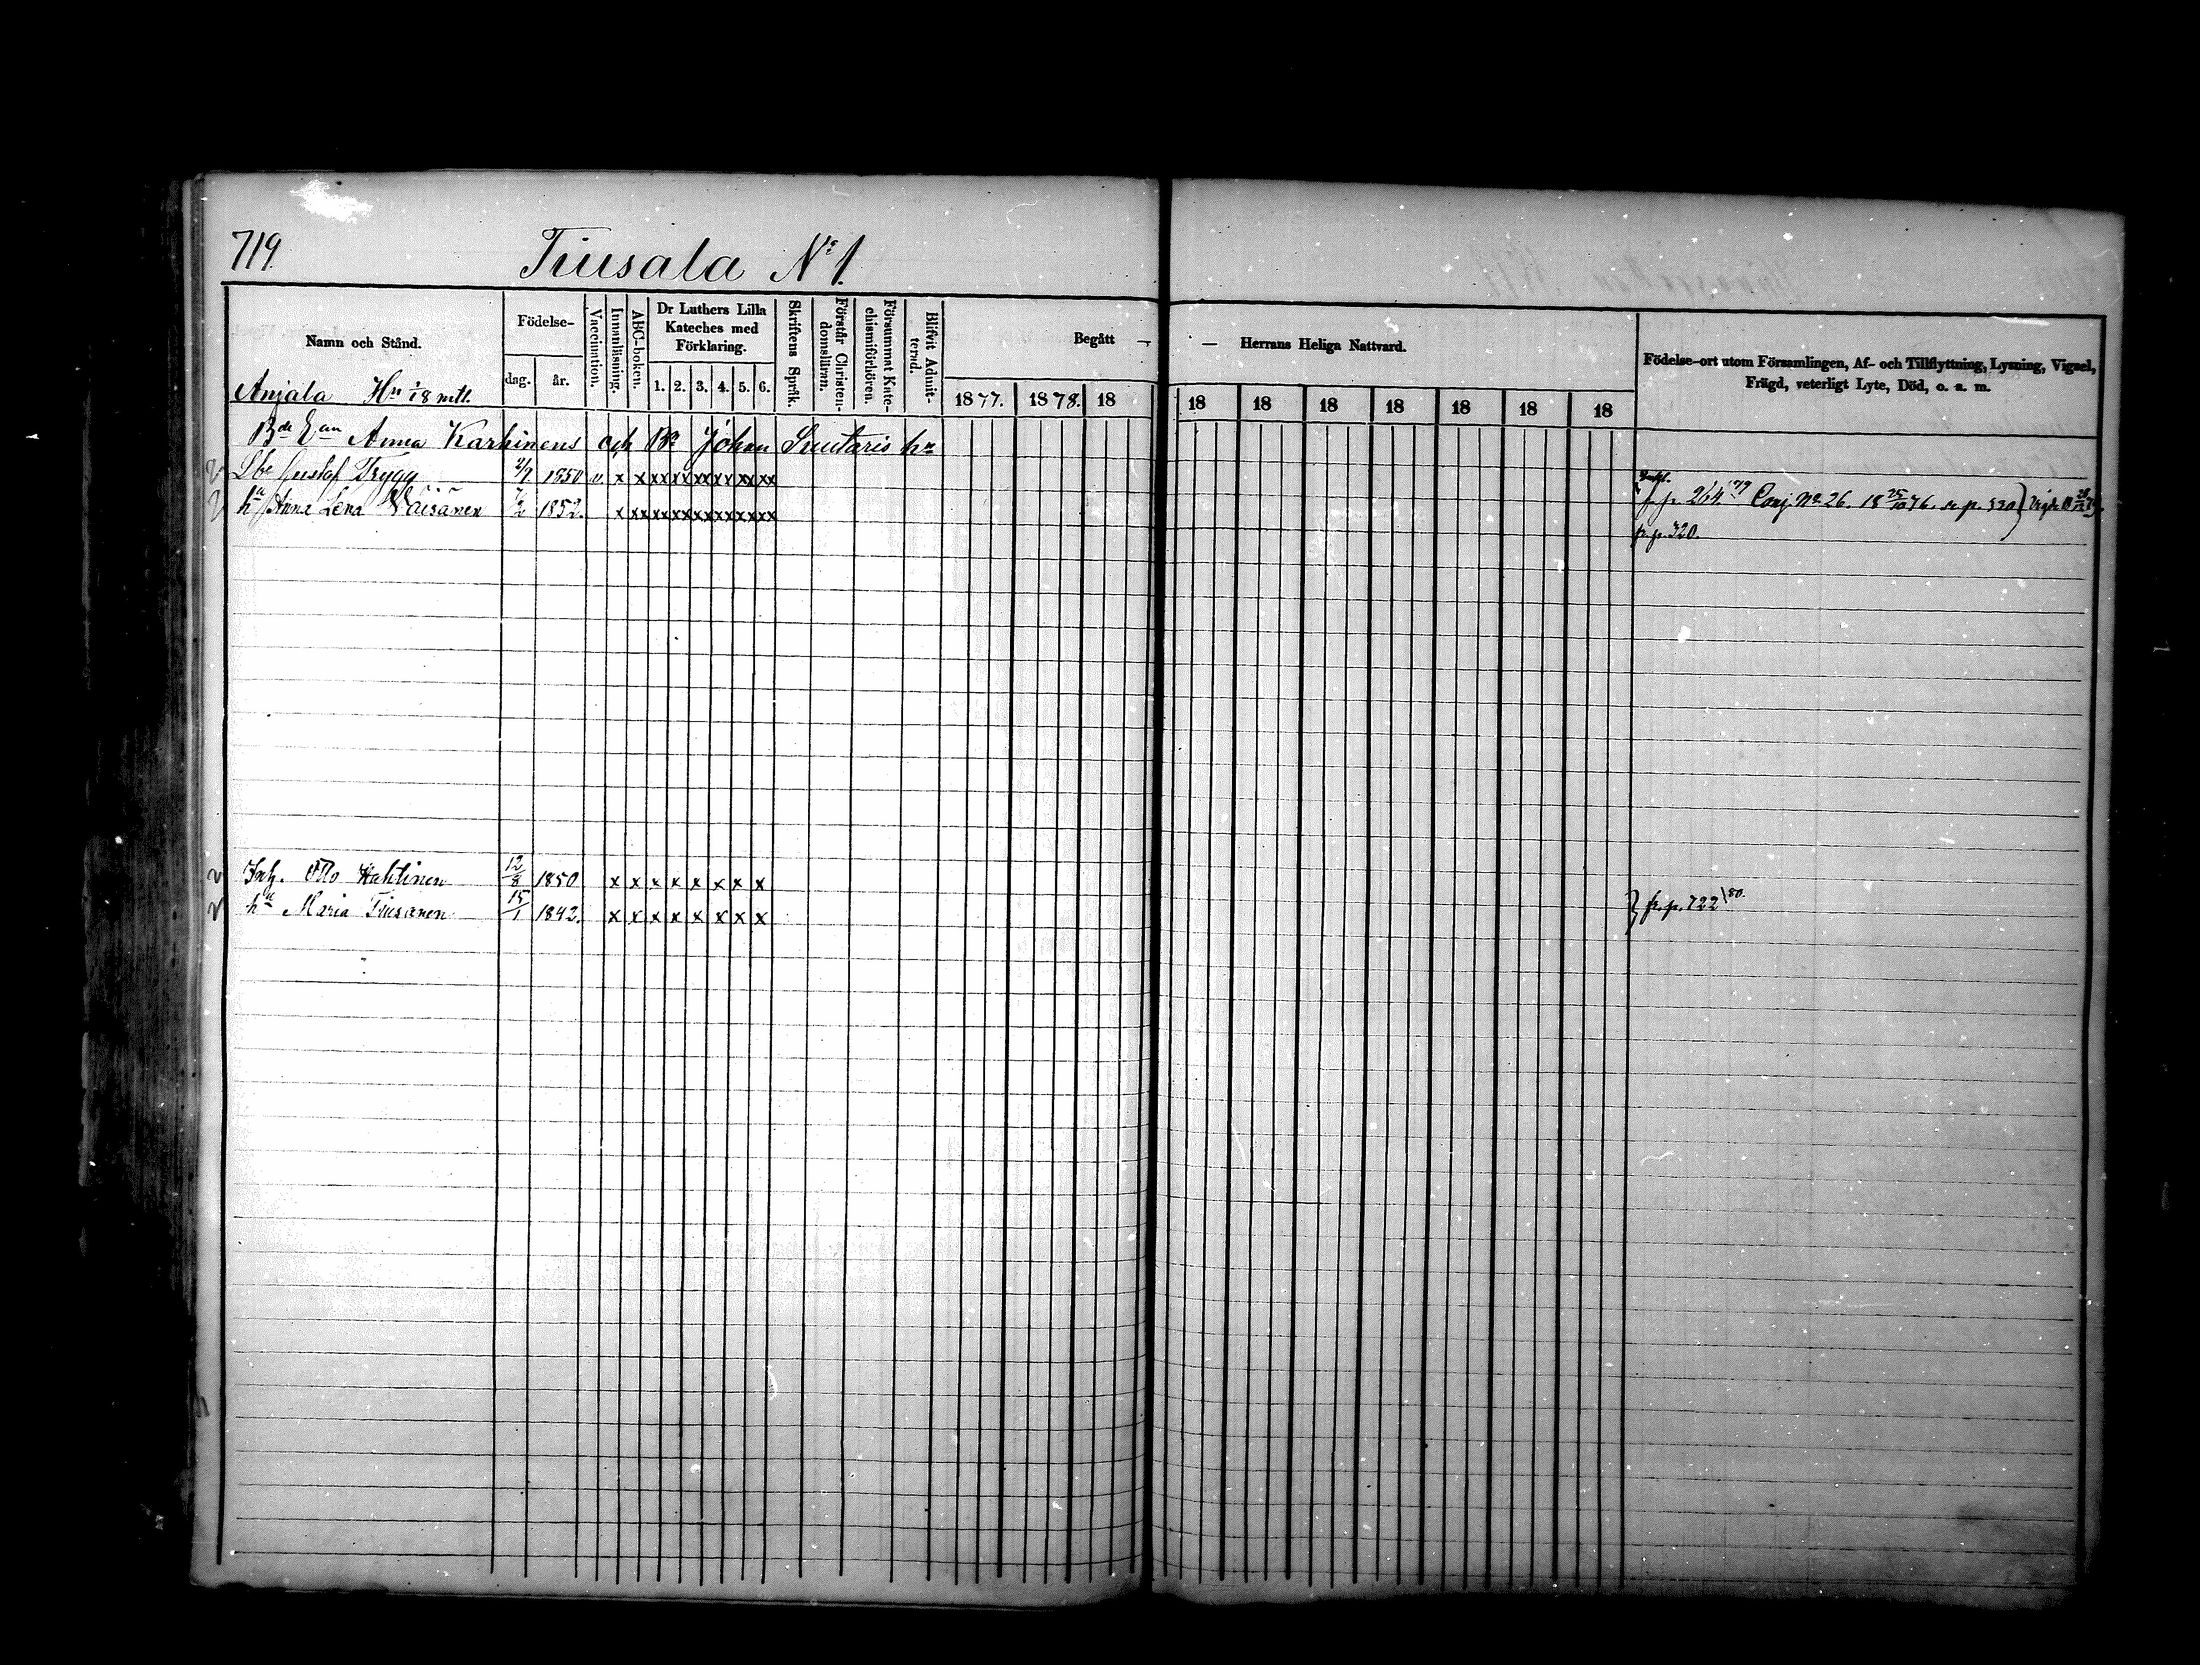 719.
Tiusala No 1.
Namn och Stånd.
Födelse-
dag.
år.
Vaccination.
Innanläsning.
ABC-boken.
Dr Luthers Lilla
Kateches med
Förklaring.
1. 2. 3. 4. 5. 6.
Skriftens Språk.
Förstår Christen-
domsläran.
Försummat Kate-
chismiförhören.
Blifvit Admit-
terad.
Begått — — Herrans Heliga Nattvard.
1877. 1878. 18 18 18 18 18 18 18 18
Födelse-ort utom Församlingen, Af- och Tillflyttning, Lysning, Vigsel,
Frägd, veterligt Lyte, Död, o. s. m.
Anjala Hn 1/8 mtl.
Bde Ean Anna Karhinens och Johan hn
Gustaf Trygg 1850 v. x x x x x x x x
p. 264 Conj. No 26. 18 25/10 76.
hu Anna Lena Väisänen 1852. x x x x x x x x
fr. p. 320.
Inh. Otto Wahtinen 12/8 1850 x x x x x x x x
hu Maria Tiusanen 15/1 1842. x x x x x x x x
fr. p. 722/80.